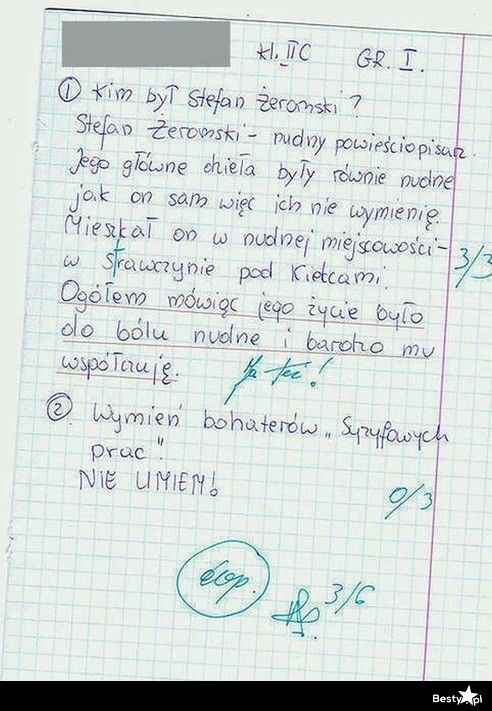 kl. II C GR. I.
① Kim był Stefan Żeromski?
Stefan Żeromski - nudny powieściopisarz.
Jego główne dzieła były równie nudne
jak on sam więc ich nie wymienię.
Mieszkał on w nudnej miejscowości -
w Strawczynie pod Kielcami.
3/3
Ogółem mówiąc jego życie było
do bólu nudne i bardzo mu
współczuję. Ja też!
② Wymień bohaterów „Syzyfowych
prac".
NIE UMIEM!
0/3
dop. 3/6
Besty.pl